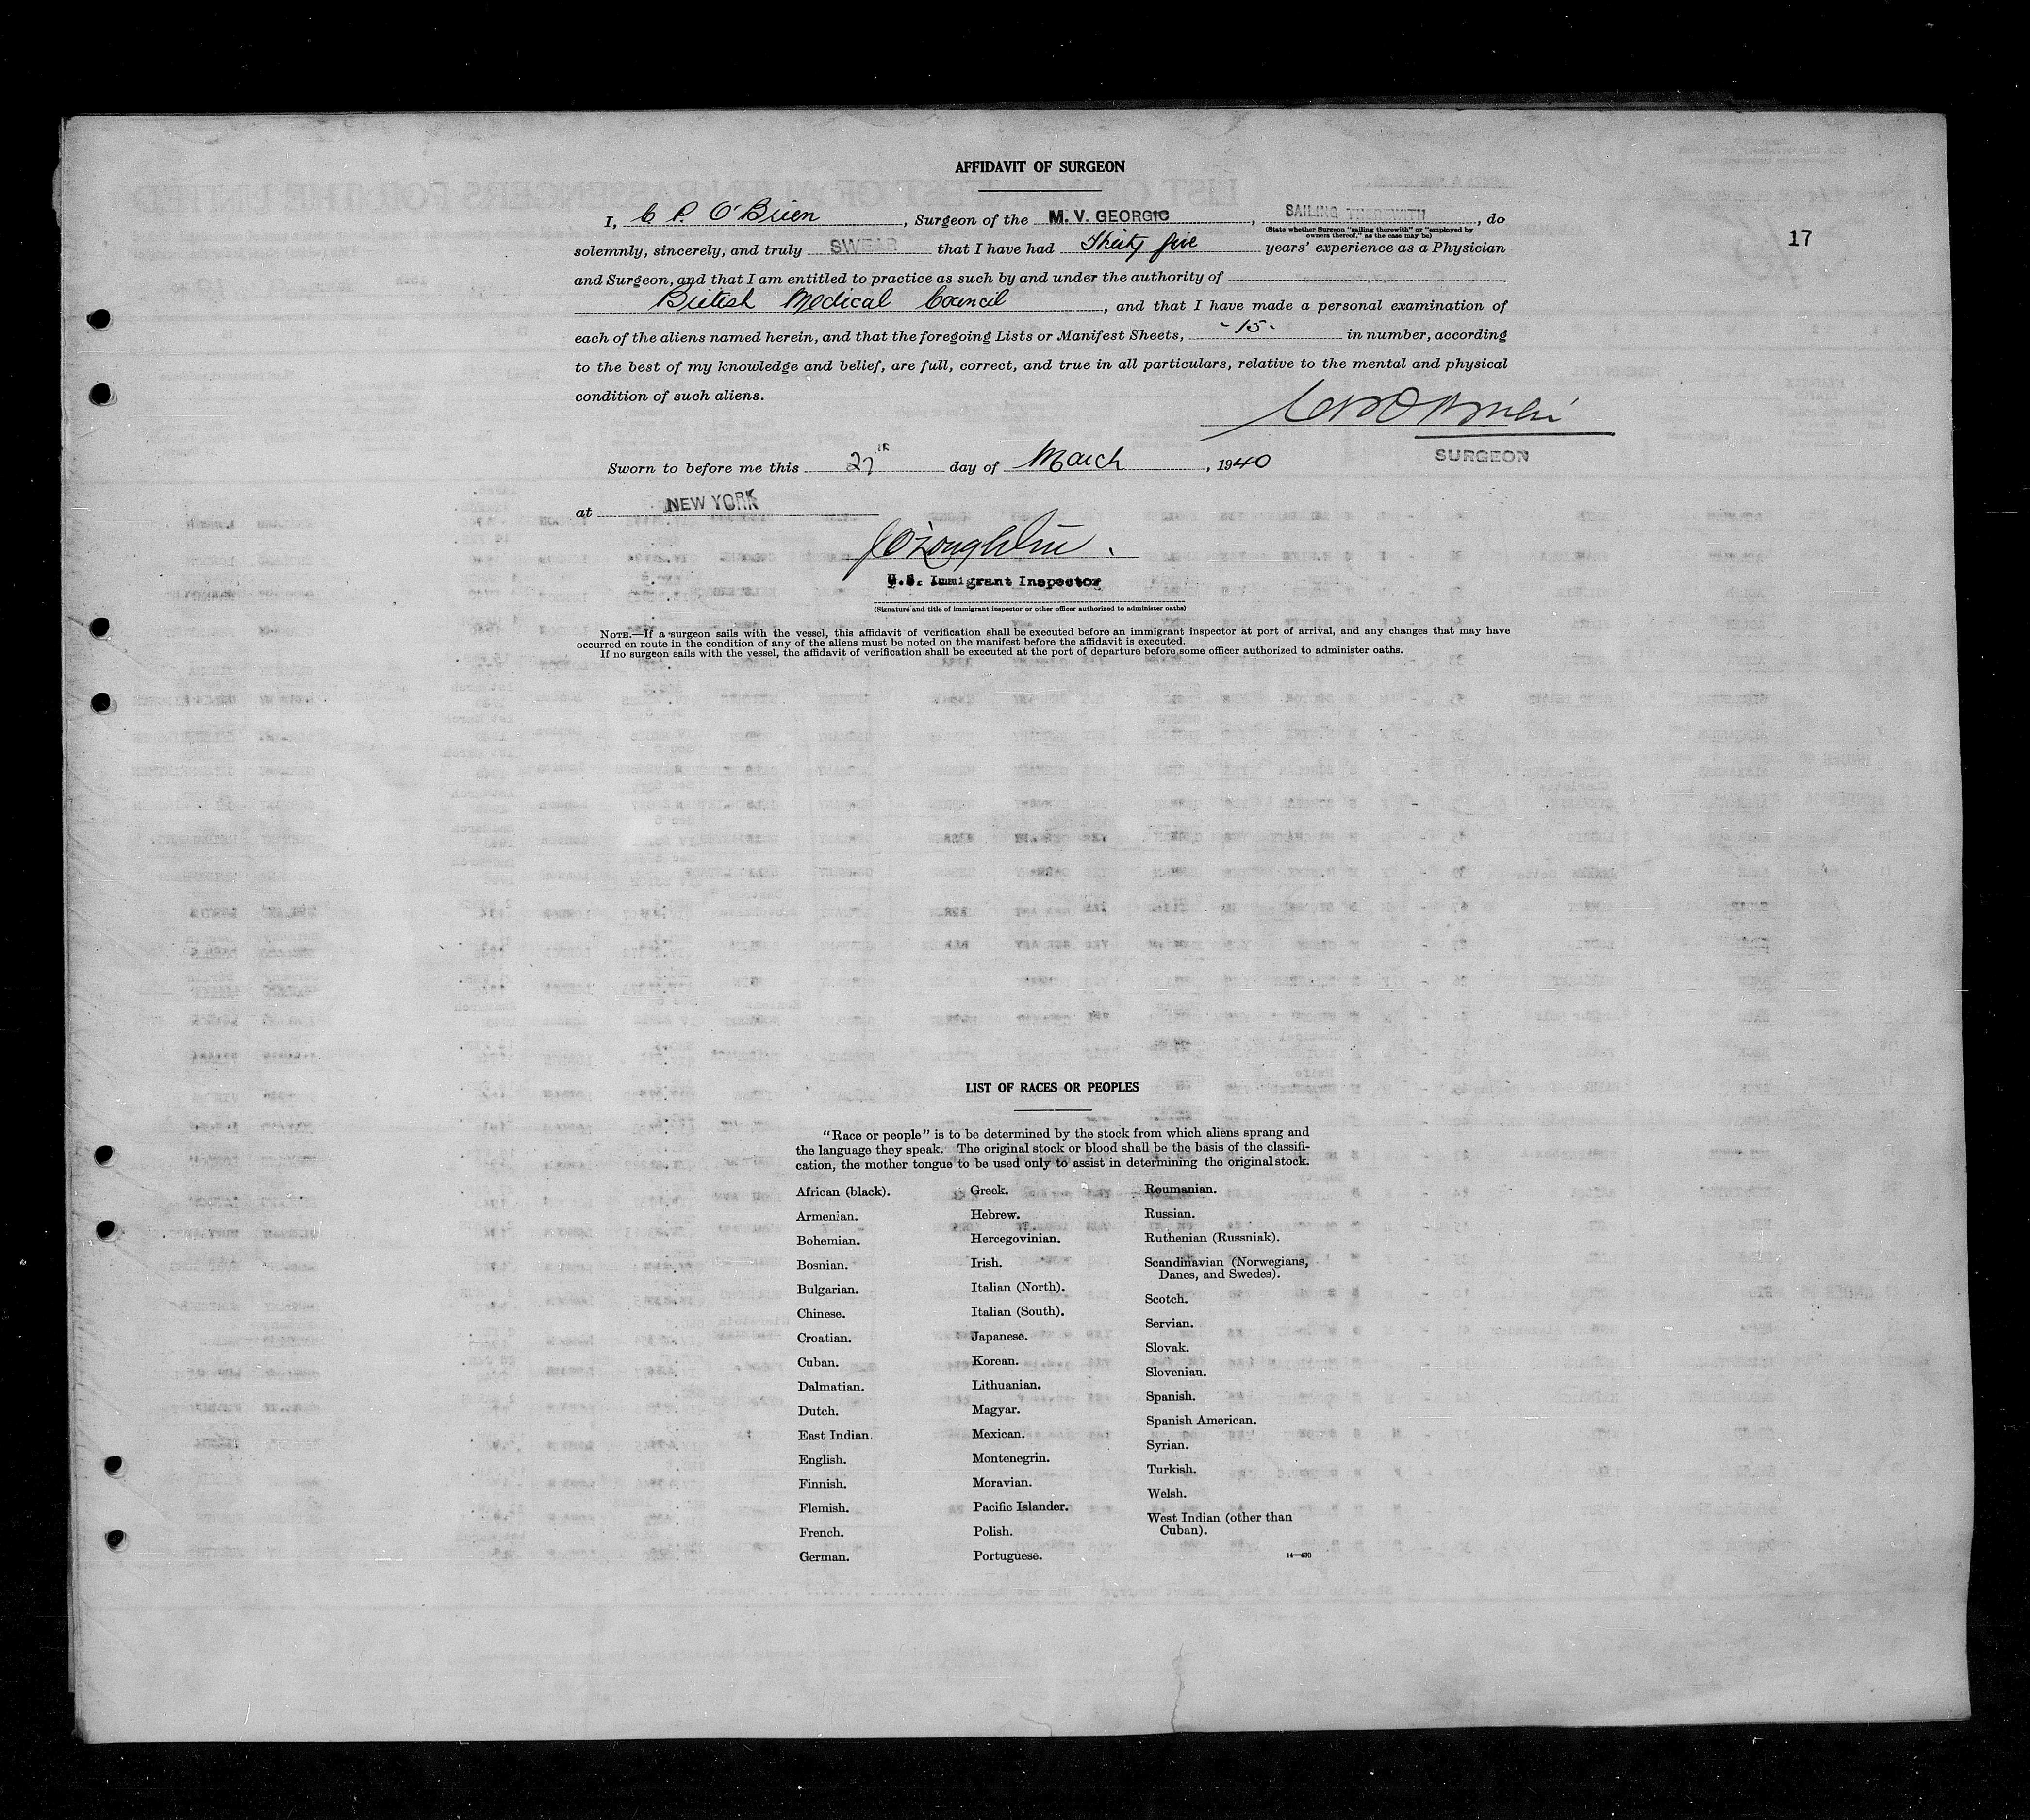 AFFIDAVIT OF SURGEON
17
I, C P. O'Brien, Surgeon of the M. V. GEORGIC, SAILING THEREWITH, do
(State whether Surgeon "sailing therewith" or "employed by
owners thereof," as the case may be)
solemnly, sincerely, and truly SWEAR that I have had Thirty five years' experience as a Physician
and Surgeon, and that I am entitled to practice as such by and under the authority of
British Medical Council, and that I have made a personal examination of
each of the aliens named herein, and that the foregoing Lists or Manifest Sheets, -15- in number, according
to the best of my knowledge and belief, are full, correct, and true in all particulars, relative to the mental and physical
condition of such aliens.
SURGEON
Sworn to before me this 27th day of March, 1940
at NEW YORK
J O'Loughlin.
U.S. Immigrant Inspector
(Signature and title of immigrant inspector or other officer authorized to administer oaths)
NOTE.—If a surgeon sails with the vessel, this affidavit of verification shall be executed before an immigrant inspector at port of arrival, and any changes that may have
occurred en route in the condition of any of the aliens must be noted on the manifest before the affidavit is executed.
If no surgeon sails with the vessel, the affidavit of verification shall be executed at the port of departure before some officer authorized to administer oaths.
LIST OF RACES OR PEOPLES
"Race or people" is to be determined by the stock from which aliens sprang and
the language they speak. The original stock or blood shall be the basis of the classifi-
cation, the mother tongue to be used only to assist in determining the original stock.
African (black).
Armenian.
Bohemian.
Bosnian.
Bulgarian.
Chinese.
Croatian.
Cuban.
Dalmatian.
Dutch.
East Indian.
English.
Finnish.
Flemish.
French.
German.
Greek.
Hebrew.
Hercegovinian.
Irish.
Italian (North).
Italian (South).
Japanese.
Korean.
Lithuanian.
Magyar.
Mexican.
Montenegrin.
Moravian.
Pacific Islander.
Polish.
Portuguese.
Roumanian.
Russian.
Ruthenian (Russniak).
Scandinavian (Norwegians,
Danes, and Swedes).
Scotch.
Servian.
Slovak.
Slovenian.
Spanish.
Spanish American.
Syrian.
Turkish.
Welsh.
West Indian (other than
Cuban).
14—430